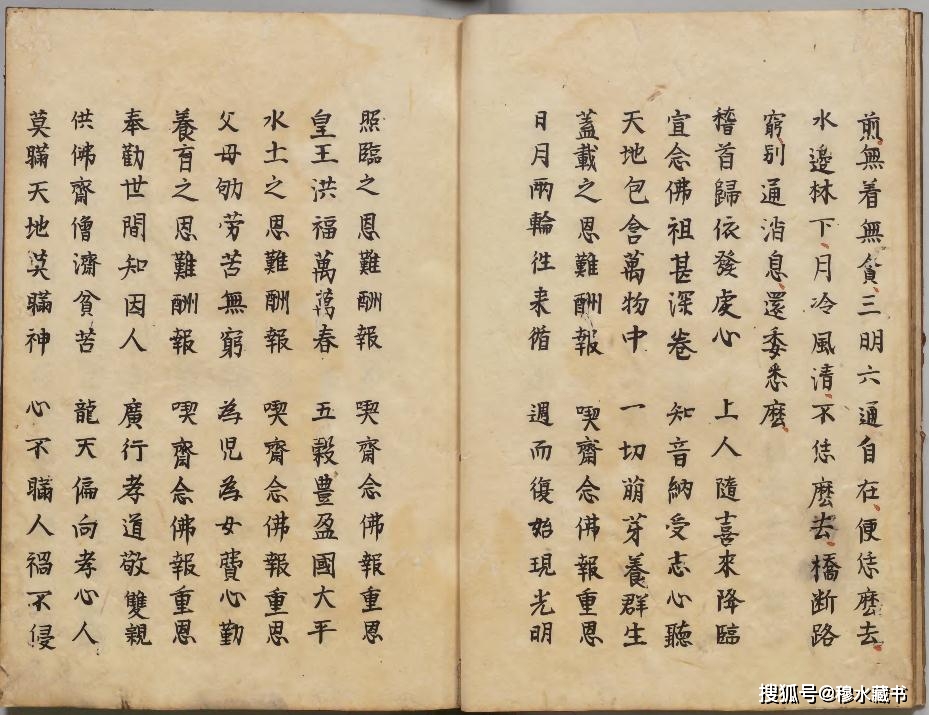 煎無着無貪三明六通自在便恁麽去
水邊林下月冷風清不恁麽去橋断路
窮别通消息還委悉麽
稽首歸依發虔心 上人隨喜來降臨
宣念佛祖甚深卷 知音納受志心聽
天地包含萬物中 一切萌芽養群生
蓋載之恩難酬報 喫齋念佛報重恩
日月兩輪徃来循 週而復始現光明
照臨之恩難酬報 喫齋念佛報重恩
皇王洪福萬萬春 五穀豊盈國太平
水土之恩難酬報 喫齋念佛報重恩
父母劬劳苦無窮 為児為女費心勤
養育之恩難酬報 喫齋念佛報重恩
奉勸世間知因人 廣行孝道敬雙親
供佛齋僧濟貧苦 龍天偏向孝心人
莫瞞天地莫瞞神 心不瞞人禍不侵
搜狐号@穆水藏书